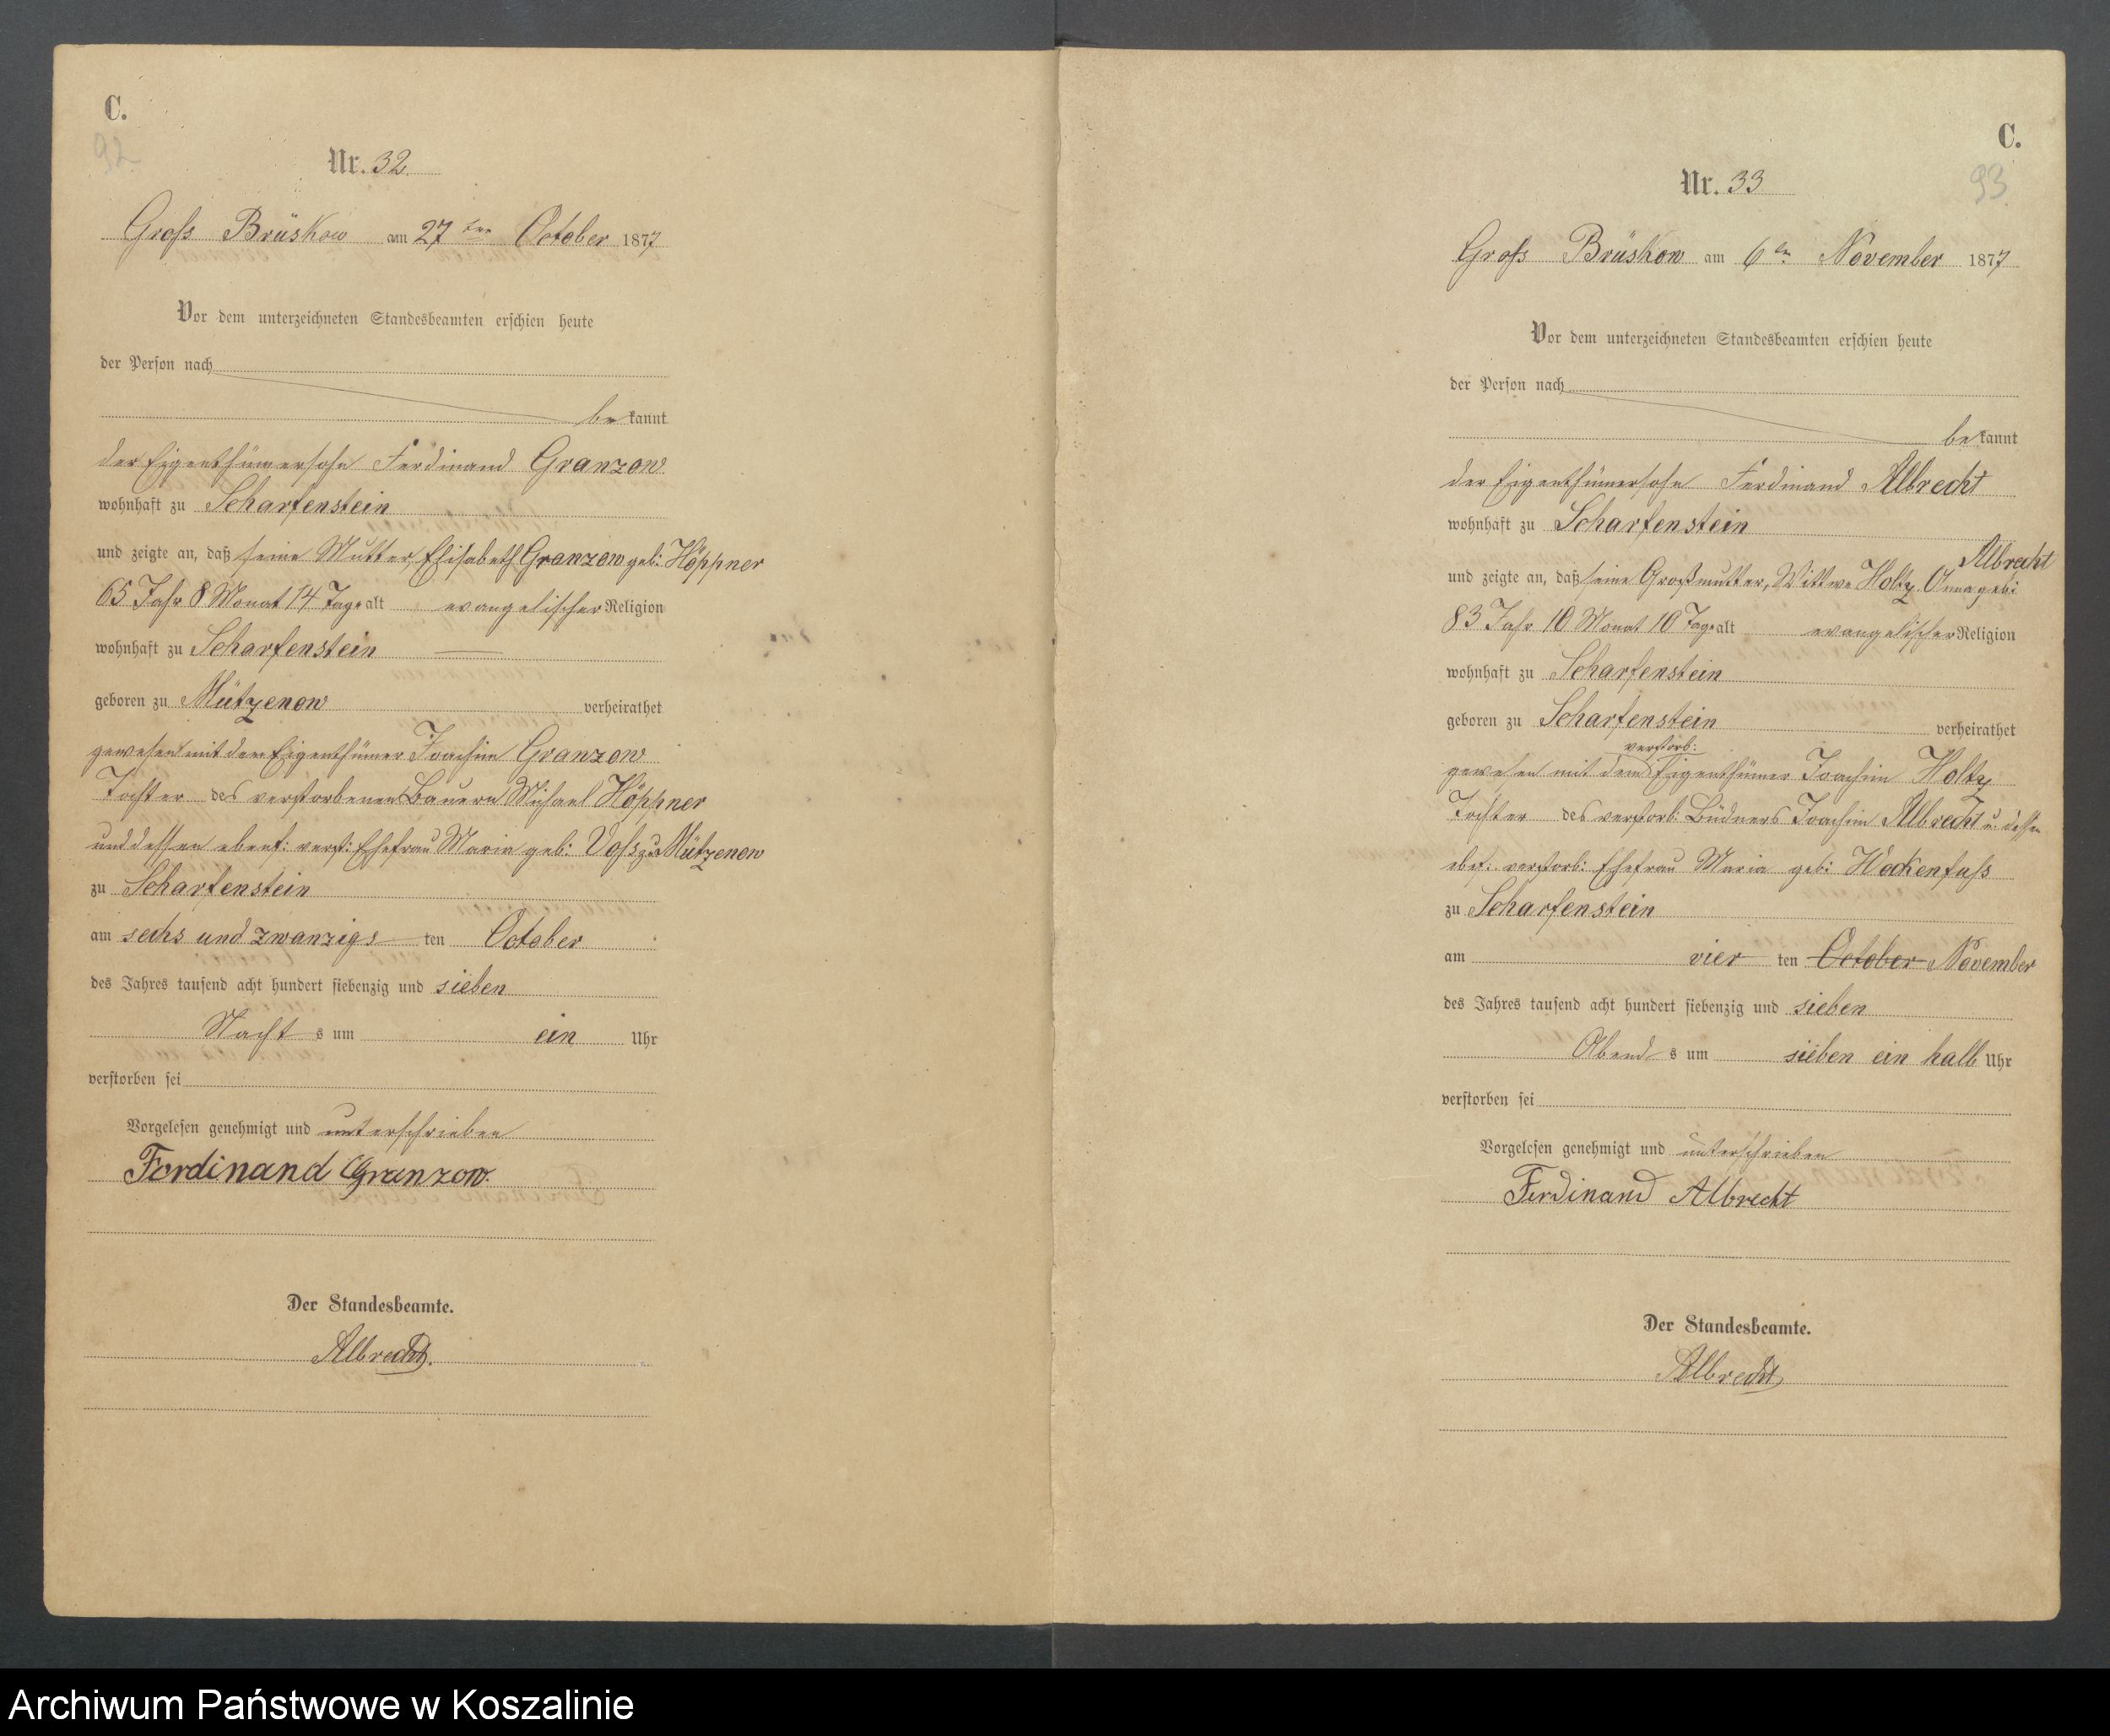 C.
92
Nr. 32.
Gross Brüskow am 27ten October 1877
Vor dem unterzeichneten Standesbeamten erschien heute
der Person nach
bekannt
der Eigenthümersohn Ferdinand Granzow
wohnhaft zu Scharfenstein
und zeigte an, daß seine Mutter, Elisabeth Granzow geb: Höppner
65 Jahr 8 Monat 14 Tage alt evangelischer Religion
wohnhaft zu Scharfenstein
geboren zu Mützenow verheirathet
gewesen mit dem Eigenthümer Joachim Granzow
Tochter des verstorbenen Bauern Michael Höppner
und dessen ebenf: verst: Ehefrau Maria geb: Voss zu Mützenow
zu Scharfenstein
am sechs und zwanzigsten October
des Jahres tausend acht hundert siebenzig und sieben
Nachts um ein Uhr
verstorben sei
Vorgelesen genehmigt und unterschrieben
Ferdinand Granzow.
Der Standesbeamte.
Albrecht.
C.
93
Nr. 33
Gross Brüskow am 6ten November 1877
Vor dem unterzeichneten Standesbeamten erschien heute
der Person nach
bekannt
der Eigenthümersohn Ferdinand Albrecht
wohnhaft zu Scharfenstein
Albrecht
und zeigte an, daß seine Großmutter, Wittwe Holtz, Anna geb:
83 Jahr 10 Monat 10 Tage alt evangelischer Religion
wohnhaft zu Scharfenstein
geboren zu Scharfenstein verheirathet
verstorb:
gewesen mit dem Eigenthümer Joachim Holtz
Tochter des verstorb: Büdners Joachim Albrecht u. dessen
ebf: verstorb: Ehefrau Maria geb: Heckenfuss
zu Scharfenstein
am vierten October November
des Jahres tausend acht hundert siebenzig und sieben
Abends um sieben ein halb Uhr
verstorben sei
Vorgelesen genehmigt und unterschrieben
Ferdinand Albrecht
Der Standesbeamte.
Albrecht
Archiwum Państwowe w Koszalinie